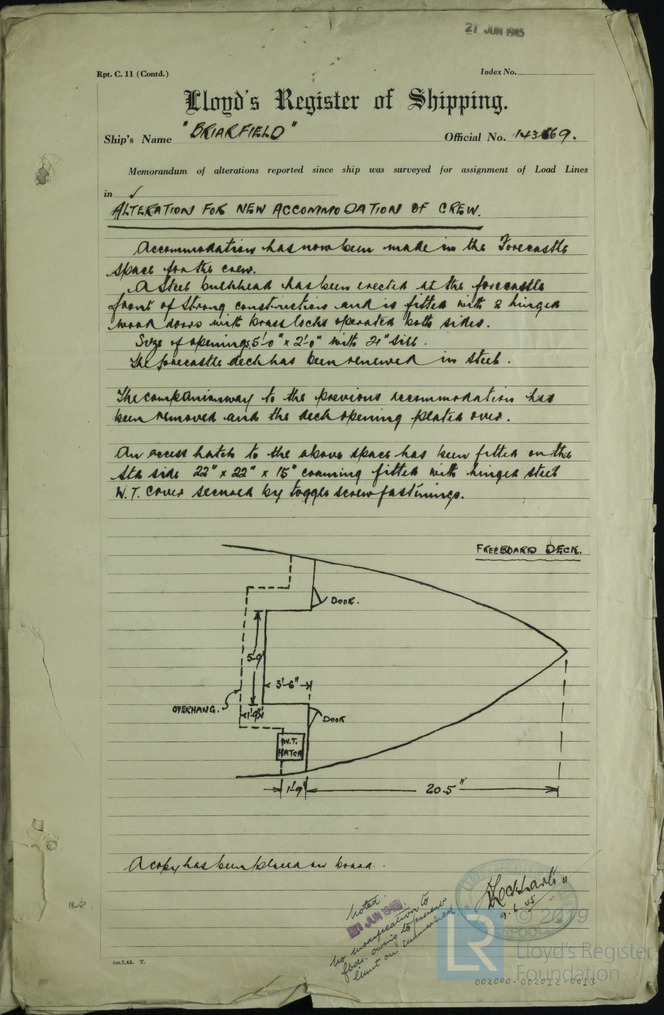 21 JUN 1945
Rpt. C. 11 (Contd.)
Index No.
Lloyd's Register of Shipping.
Ship's Name "BRIARFIELD" Official No. 143669.
Memorandum of alterations reported since ship was surveyed for assignment of Load Lines
in ✓
ALTERATION FOR NEW ACCOMMODATION OF CREW.
Accommodation has now been made in the Forecastle
space for the crew.
A steel bulkhead has been erected at the forecastle
front of strong construction and is fitted with 2 hinged
wood doors with brass locks operated both sides.
Size of openings 5'0" x 2'0" with 21" sill.
The forecastle deck has been renewed in steel.
The companionway to the previous accommodation has
been removed and the deck opening plated over.
An access hatch to the above space has been fitted on the
Stb side 22" x 22" x 15" coaming fitted with hinged steel
W.T. cover secured by toggle screw fastenings.
FREEBOARD DECK.
DOOR.
5-9"
3'-6"
OVERHANG.
1'-9"
DOOR
W.T.
HATCH
1'-9"
20.5"
A copy has been placed on board.
Noted
21 JUN 1945
No modification to
fbds. owing to
limit on
9.6.45
© 2019
LR
Lloyd's Register
Foundation
002000-002012-0013